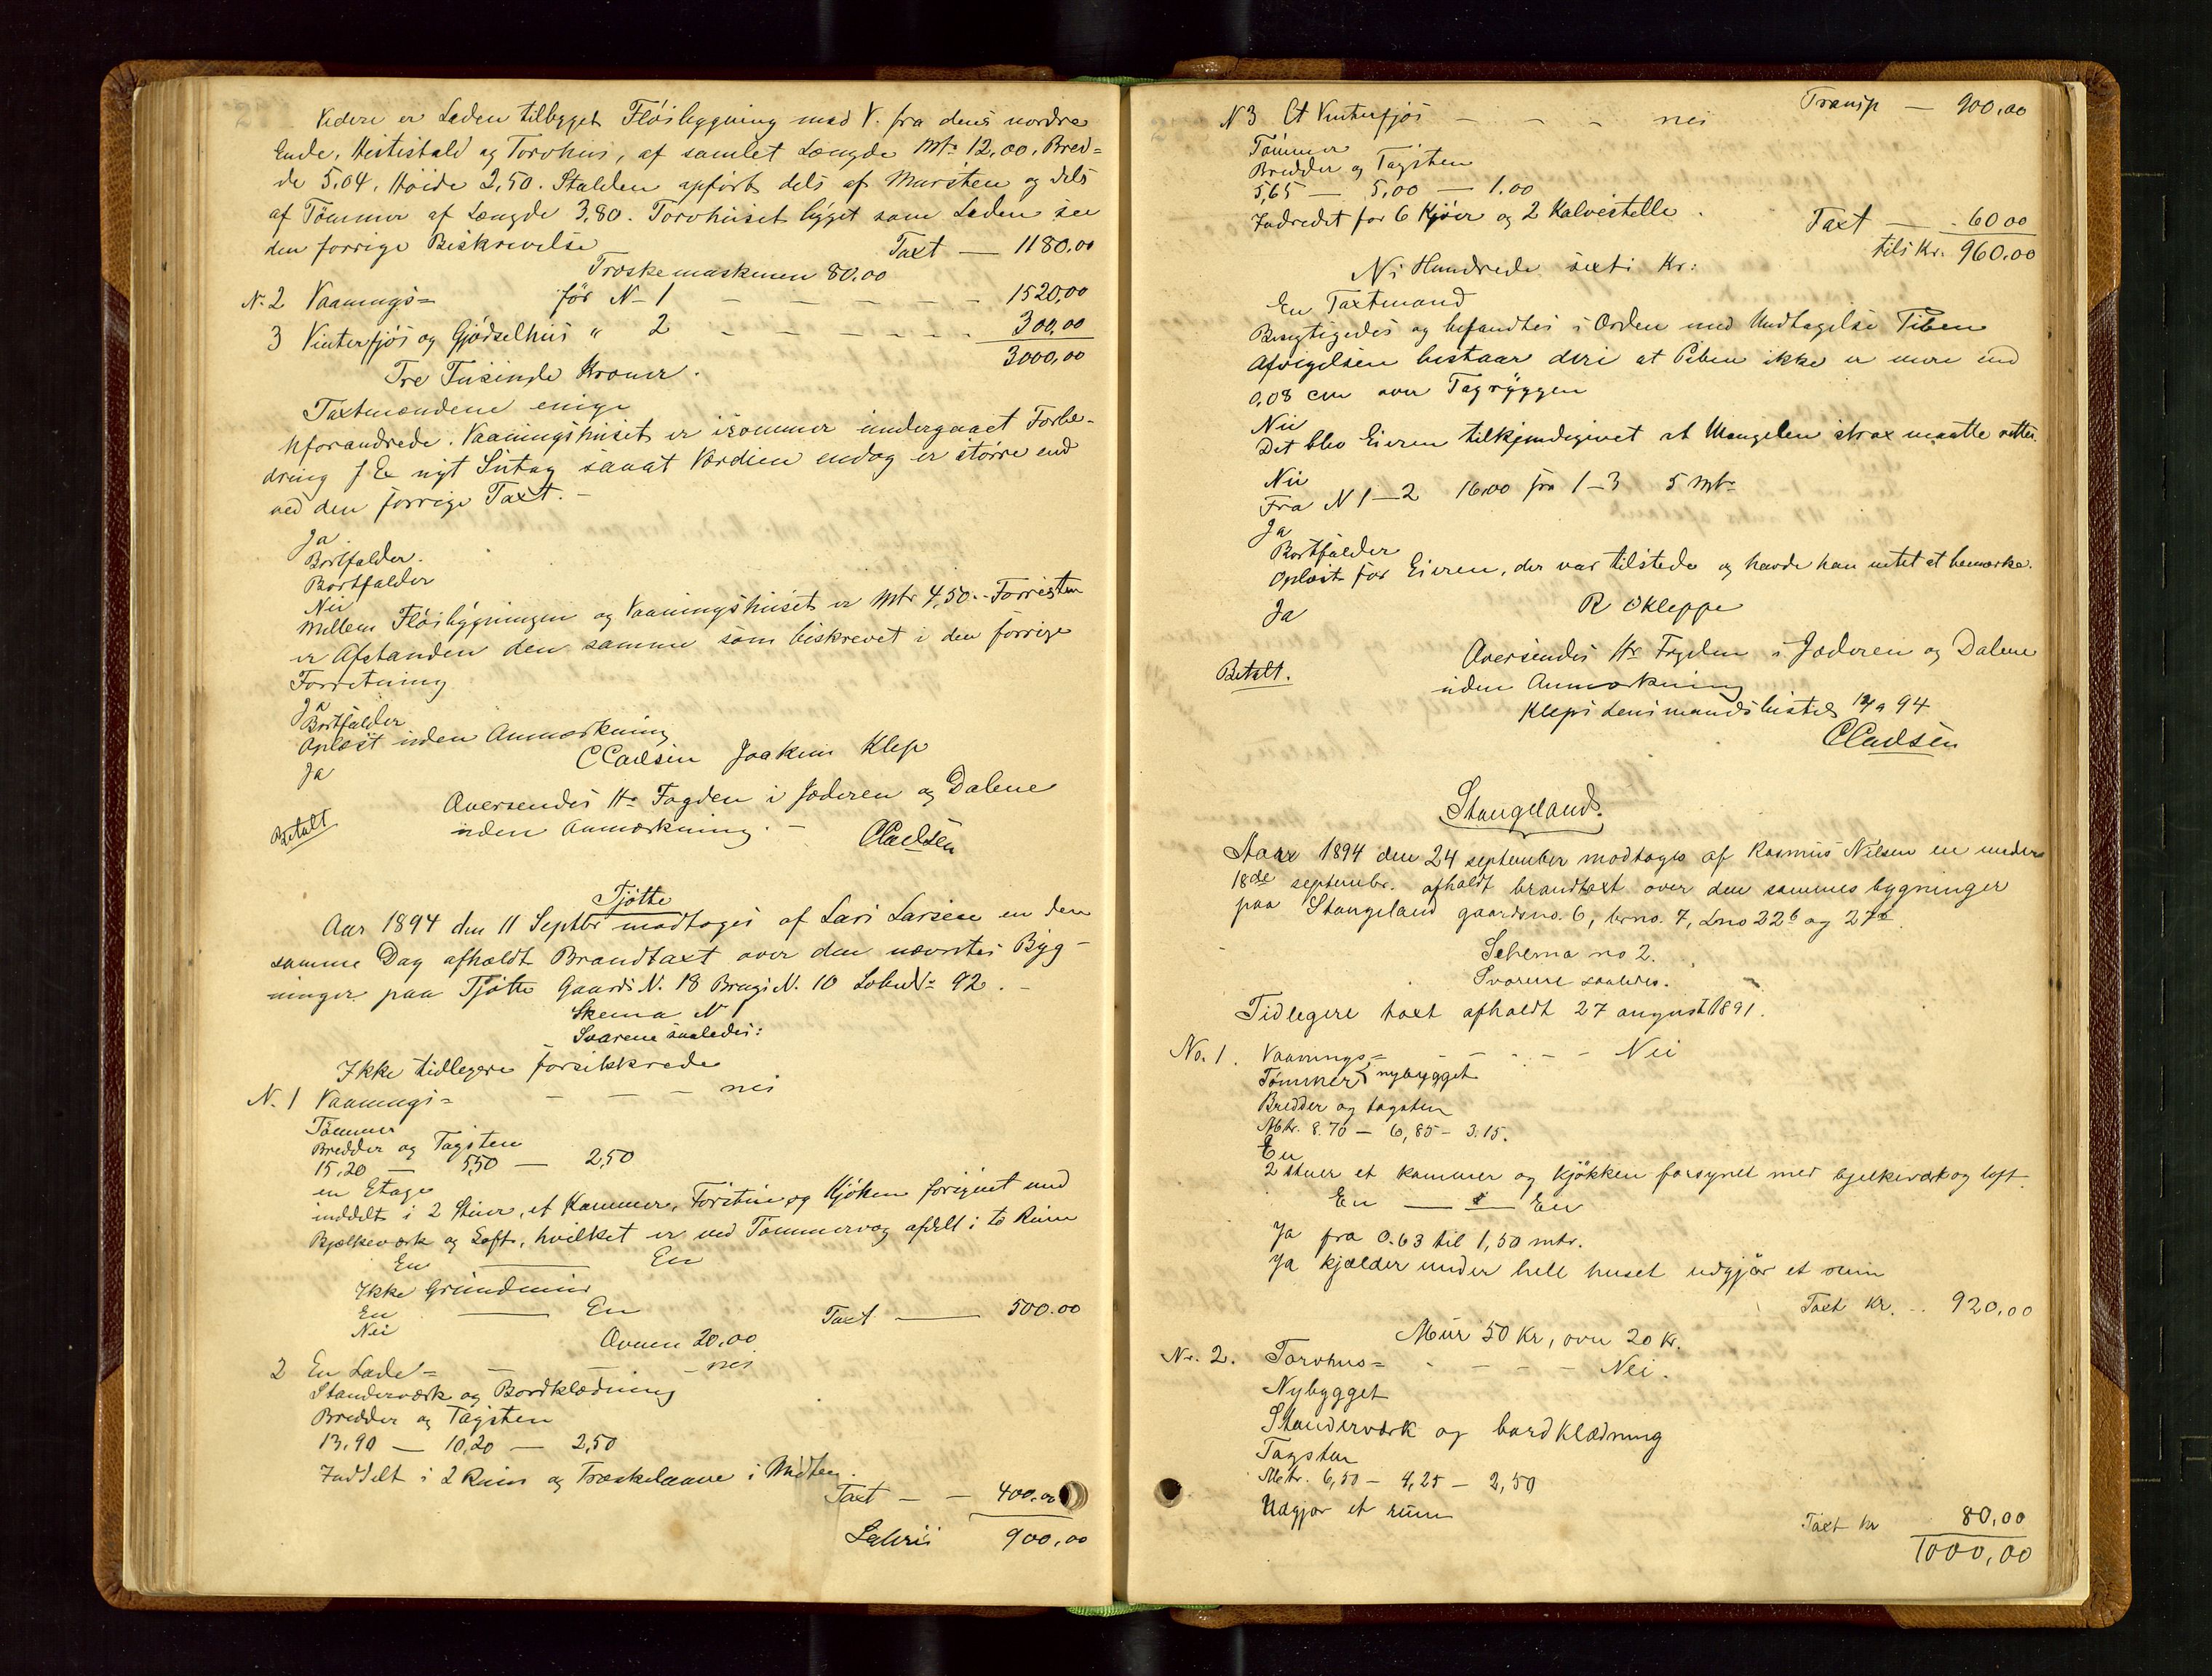 Videre er Laden tilbygget Fløibygning mod V. fra dens nordre
Ende, Hestestald og Torvhus, af samlet Længde Mtr 12,00, Bred=
de 5,04, Høide 2,50. Stalden opført dels af Mursten og dels
af Tømmer af Længde 3,80. Torvhuset bygget som Laden see
den forrige Beskrivelse
Taxt — 1180,00
Træskemaskinen 80,00
N. 2 Vaanings= før N-1 — — — — — — 1520,00
3 Vinterfjøs og Gjødselhus " 2 — — — — — — 300,00
3000,00
Tre Tusinde Kroner.
Taxtmændene enige
Uforandrede. Vaaningshuset er isommer undergaaet Forbe-
dring f Ex nyt Sutag saaat Værdien endog er større end
ved den forrige Taxt. –
Ja
Bortfalder.
Bortfalder
Nei
Mellem Fløibygningen og Vaaningshuset er Mtr 4,50. - Forresten
er Afstanden den samme som beskrevet i den forrige
Forretning
Ja
Bortfalder
Oplæst uden Anmærkning
Ja
CCarlsen Joakim Klep
Oversendes Hr Fogden i Jæderen og Dalene
uden Anmærkning. –
Betalt
CCarlsen
Tjøtte
Aar 1894 den 11 Septbr modtoges af Lars Larsen en den
samme Dag afholdt Brandtaxt over den nævntes Byg-
ninger paa Tjøtte Gaards N. 18 Brugs N. 10 Løbe N: 92. –
Skema N 1
Svarene saaledes:
Ikke tidligere forsikkrede
N. 1 Vaanings= — — — nei
Tømmer
Bredder og Tagsten
15,20 — 5,50 — 2,50
en Etage
inddelt i 2 Stuer, et Kammer, Forstue og Kjøken forsynet med
Bjælkeværk og Loft, hvilket er ved Tømmervæg afdelt i to Rum
En — En
Ikke Grundmur
En — En Taxt — 500.00
Nei
Ovnen 20,00
2 En Lade= — — nei
Standerværk og Bordklædning
Bredder og Tagsten
13,90 — 10,20 — 2,50
Inddelt i 2 Rum og Træskelaave i Midten.
Taxt — — 400,00
900,00
Transp — 900,00
N 3 Et Vinterfjøs — — — nei
Tømmer
Bredder og Tagsten
5,65 — 5,00 — 1.00
Indredet for 6 Kjøer og 2 Kalvestelle.
Taxt — 60 00
tils Kr. 960.00
Ni Hundrede sexti Kr:
En Taxtmand
Besigtigedes og befandtes i Orden med Undtagelse Piben
Afvigelsen bestaar deri at Piben ikke er mere end
0,08 cm over Tagryggen
Nei
Det blev Eieren tilkjendegivet at Mangelen strax maatte rettes.
Nei
Fra N 1–2 16,00 fra 1–3 5 Mtr
Ja
Bortfalder
Oplæst for Eieren, der var tilstede og havde han intet at bemærke.
Ja
R OKleppe
Oversendes Hr Fogden i Jæderen og Dalene
Betalt. uden Anmærkning
Kleps Lensmandsbestil 12/9 94
CCarlsen
Stangeland.
Aar 1894 den 24 september modtoges af Rasmus Nilsen en under
18de septembr. afholdt brandtaxt over den sammes bygninger
paa Stangeland gaardsno. 6, brno. 7, Lno 22b og 27b.
Schema no 2.
Svarene saaledes.
Tidligere taxt afholdt 27 august 1891.
No. 1. Vaanings= — — — — Nei
Tømmer nybygget
Bredder og tagsten
Mtr. 8.70 — 6,85 — 3.15.
En
2 stuer et kammer og kjøkken forsynet med bjelkeværk og loft.
En — En
Ja fra 0.63 til 1,50 mtr.
Ja kjælder under hele huset udgjør et rum
Taxt Kr. .. 920,00
Mur 50 Kr, ovn 20 Kr.
Nr. 2. Torvhus= — — — — Nei.
Nybygget
Standerværk og bordklædning
Tagsten
Metr. 6,50 — 4,25 — 2,50
Udgjør et rum
Taxt Kr 80,00
1000,00